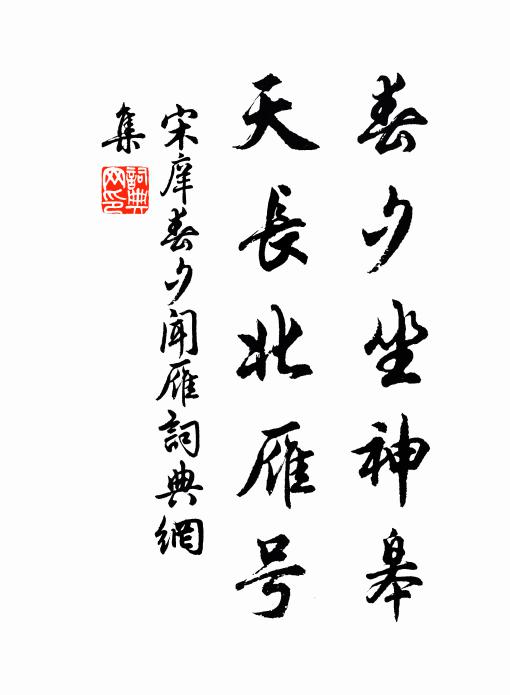 春夕坐神皋
天長北雁号
宋庠春夕聞雁詞典網
集
詞典
网印